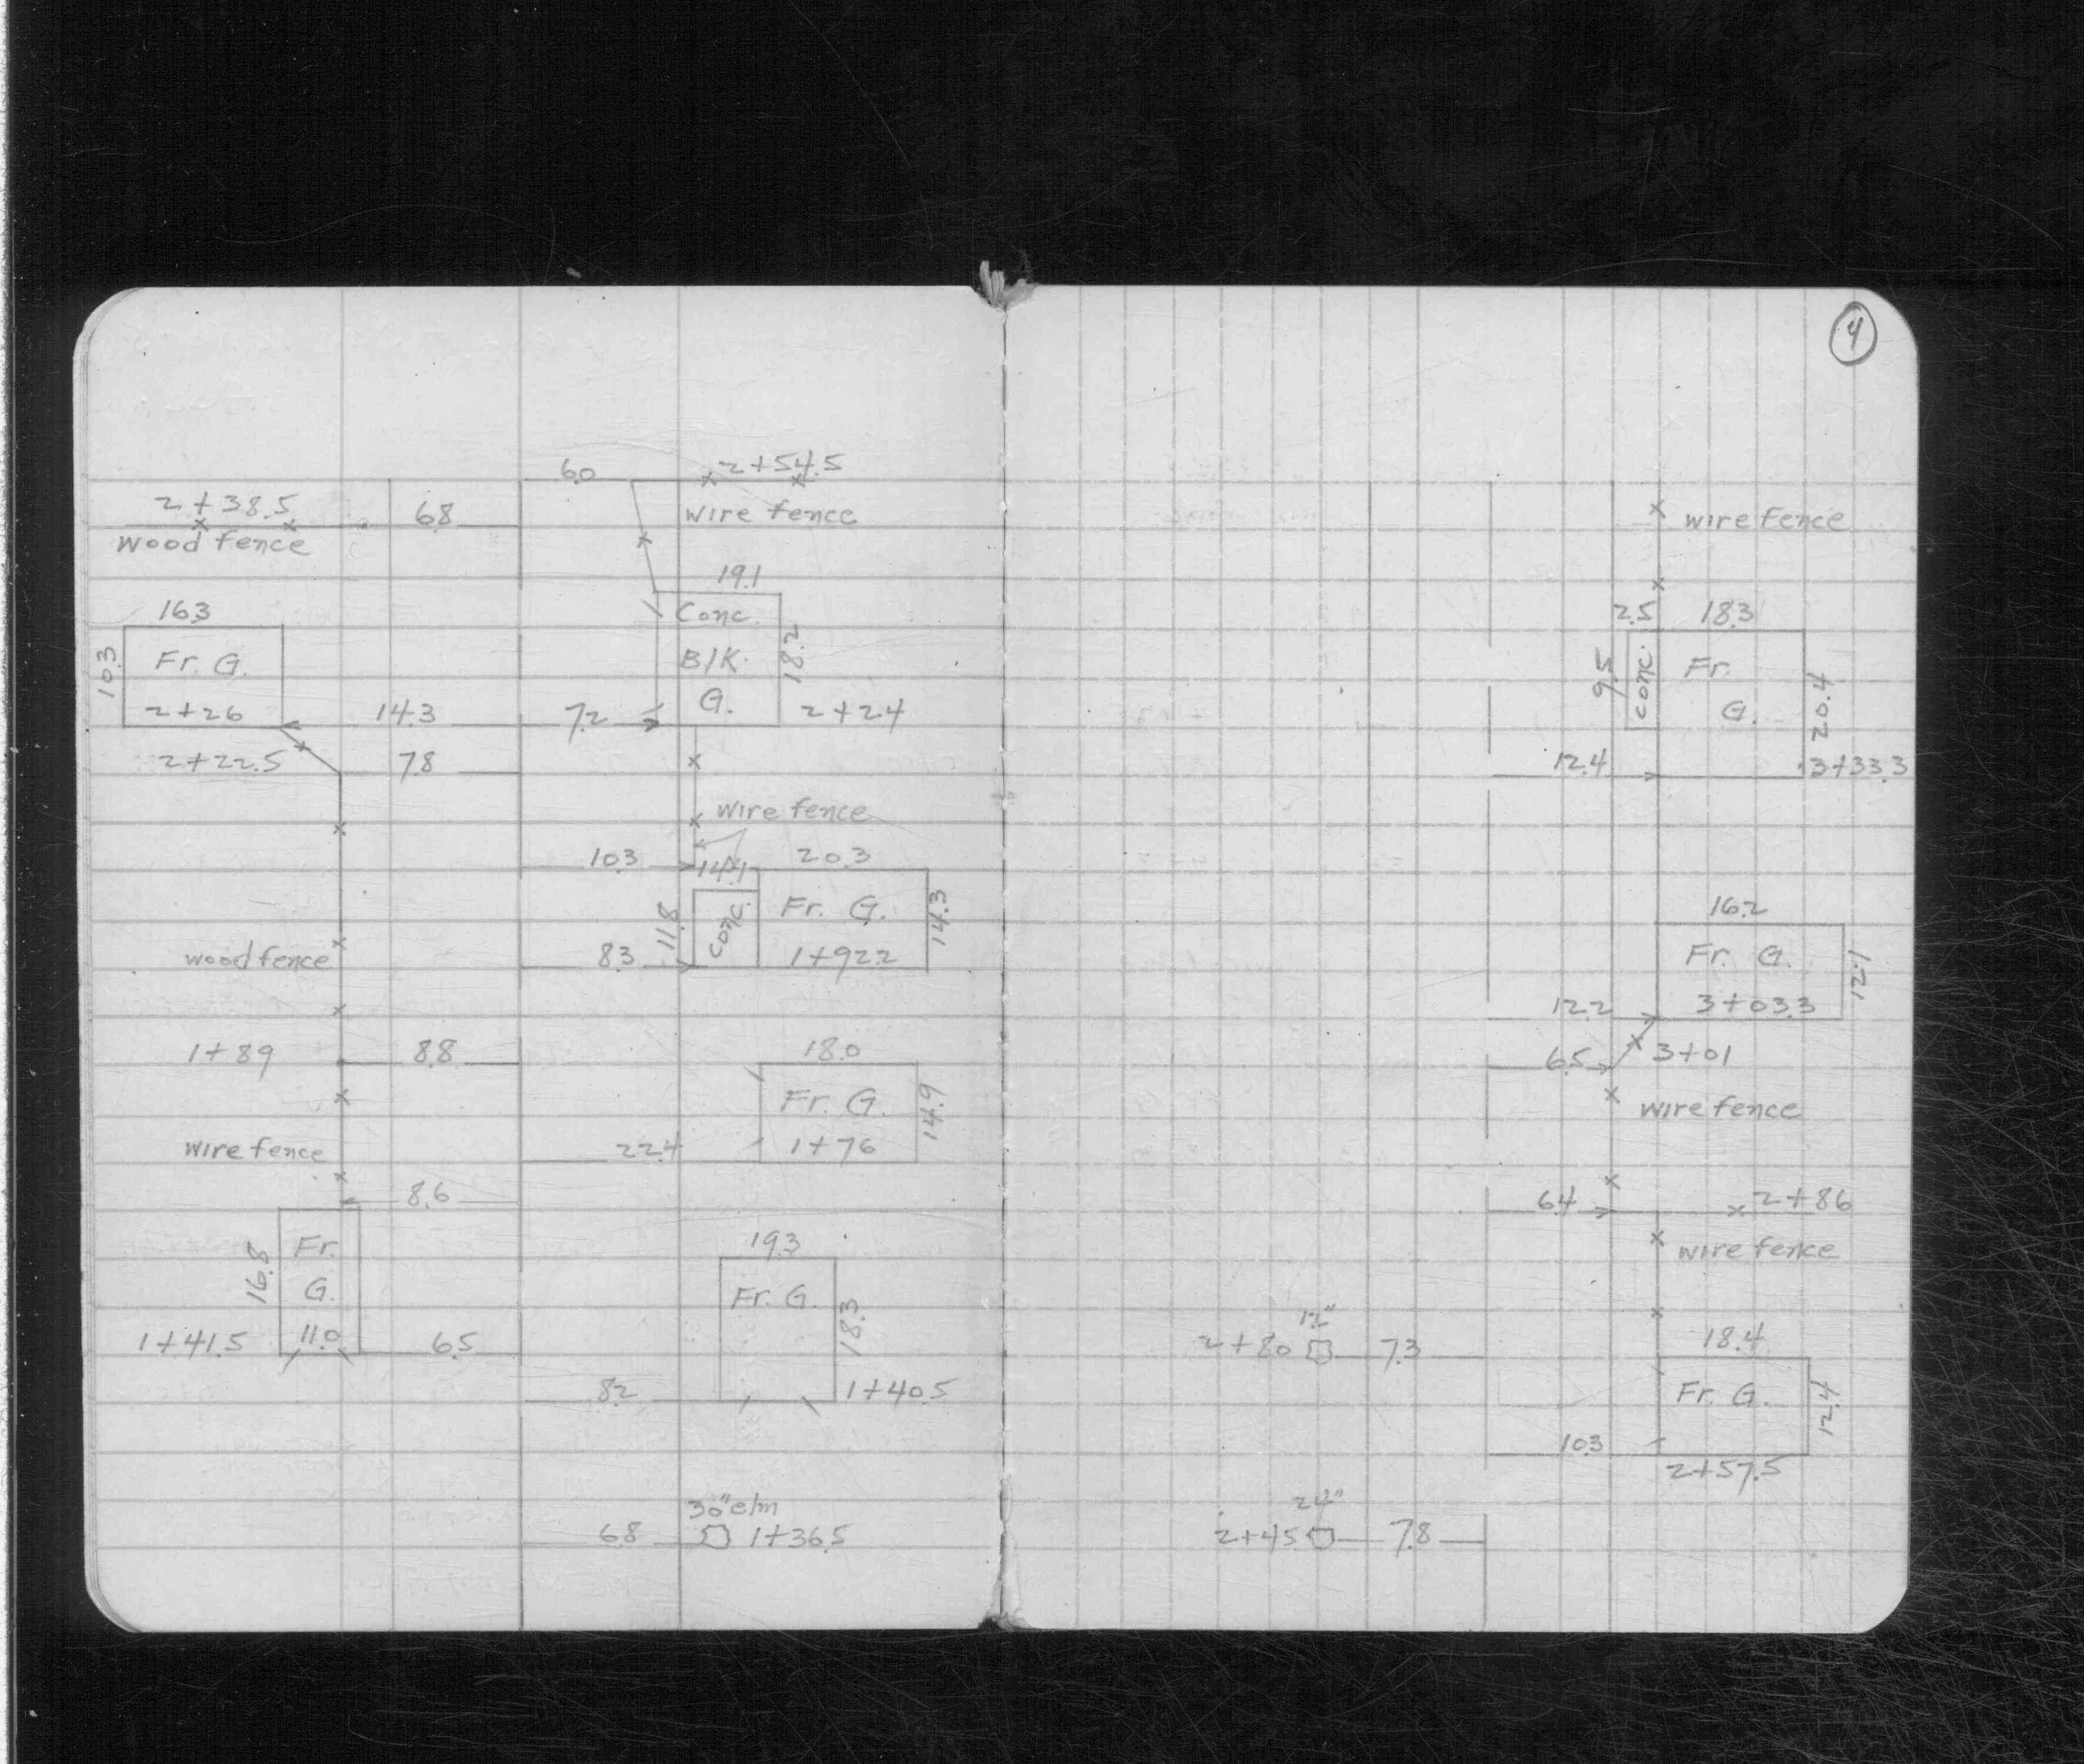 6.0 2+54.5
2+38.5 6.8 wire fence
wood fence
19.1
16.3 Conc.
10.3 Fr. G. Blk. 18.2
2+26 14.3 7.2 G. 2+24
2+22.5 7.8
wire fence
10.3 14.1 20.3
11.8 conc. Fr. G. 14.3
wood fence 8.3 1+92.2
1+89 8.8 18.0
Fr. G. 14.9
wire fence 22.4 1+76
8.6
16.8 Fr. 19.3
G. Fr. G. 18.3
1+41.5 11.0 6.5
8.2 1+40.5
30" elm
6.8 1+36.5
4
wire fence
2.5 18.3
9.5 conc. Fr. 20.4
G.
12.4 3+33.3
16.2
Fr. G. 12.1
12.2 3+03.3
6.5 3+01
wire fence
6.4 2+86
wire fence
12" 18.4
2+80 7.3
Fr. G. 12.4
10.3
2+57.5
24"
2+45 7.8